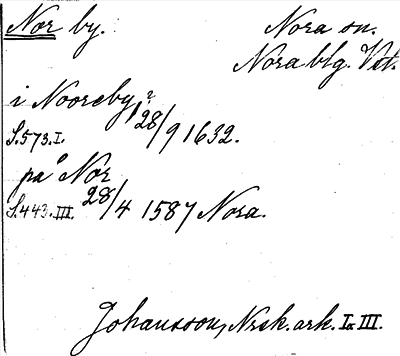 Nor by. Nora sn.
Nora blg. Vstm.
i Nooreby? 28/9 1632.
S.573.I.
på Nor
S.443.III. 28/4 1587 Nora.
Johansson, Nrsk. ark. I. III.